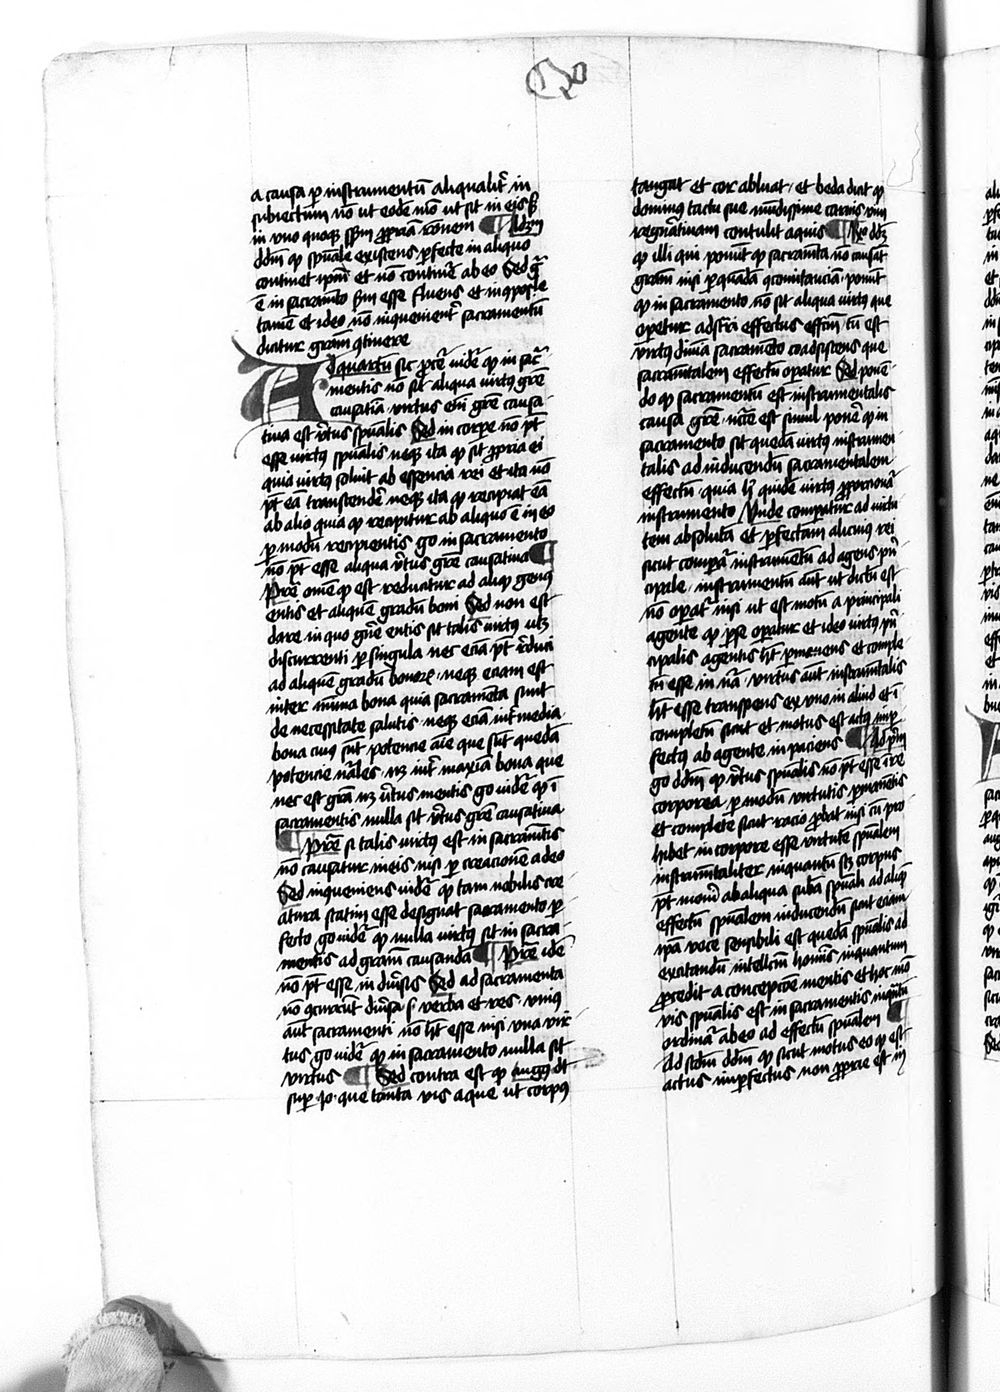 a causa ꝑ instrumentū aliqualiť in
subiectum nō ut eodē mō ut sit in eis ß
in vno quoqꝫ ßm ꝓpriā rōnem ¶ Ad
ddm̄ ꝙ spūale existens ꝑfecte in aliquo
continet ipm̄ et nō continet᷑ ab eo Sed gr̄a
ē in sacramēto ßm esse fluens et incomple
tum et ideo nō inconueniēt᷑ sacramentū
dicitur grām ꝯtinere
Ad quartū sic ꝓcet᷑ videt᷑ ꝙ in sacr̄
mentis nō sit aliqua virtꝰ grē
causatiua virtus em̄ grē causa
tiua est v̄tus spūalis Sed in corpore nō pōt
esse virtꝰ spūalis neqꝫ ita ꝙ sit ꝓpria ei
quia virtꝰ fluit ab essencia rei et ita nō
pōt eā transcendē neqꝫ ita ꝙ recipiat eā
ab alio quia ꝙ recipitur ab aliquo ē in eo
ꝑ modū recipientis go in sacramento
nō pōt esse aliqua v̄tus grē causatiua ¶
Pret᷑ omē ꝙ est reducitur ad aliqď genꝰ
entis et aliquē gradū boni Sed non est
dare in quo gn̄e entis sit talis virtꝰ ut
discurrenti ꝑ singula nec eciā pōt r̄duci
ad aliquē gradū bonorꝫ neqꝫ eciam est
inter mīma bona quia sacramēta sunt
de necessitate salutis neqꝫ eciā int᷑ media
bona cuiꝰ sūt potencie aīe que sūt quedā
potencie nāles nꝫ int᷑ maxīa bona que
nec est grā nꝫ v̄tus mentis go videt᷑ ꝙ ī
sacramentis nulla sit v̄tus grē causatiua
¶ Pret᷑ si talis virtꝰ est in sacramētis
nō causatur in eis nisi ꝑ creacionē a deo
Sed inconueniens videt᷑ ꝙ tam nobilis cre
atura statim esse desinat sacramento ꝑ
fecto go videt᷑ ꝙ nulla virtꝰ sit in sacra
mentis ad gram̄ causandā ¶ Pret᷑ idē
nō pōt esse in diūsis Sed ad sacramenta
nō ꝯcurrūt diūsa s verba et res vniꝰ
aūt sacramenti nō pōt esse nisi vna vir
tus go videt᷑ ꝙ in sacramento nulla sit
virtus ¶ Sed contra est ꝙ augꝰ dt
sup Jo que tanta vis aque ut corpꝰ
tangat et cor abluat et beda dicit ꝙ
dominꝰ tactu sue mūdissime carnis vim
regn̄atiuam contulit aquis ¶ Rō ddꝫ
ꝙ illi qui ponūt ꝙ sacramēta nō causāt
grām nisi ꝑ quandā ꝯcomitanciā ponūt
ꝙ in sacramento nō sit aliqua virtꝰ que
operetur ad sacri effectus effcm̄ tn̄ est
v̄rtꝰ diuīa sacramēto coadsistens que
sacramētalem effectū operatur Sed ponē
do ꝙ sacramentū est instrumentalis
causa grē necē est simul ponē ꝙ in
sacramento sit quedā virtꝰ instrumen
talis ad inducendū sacramentalem
effectū quia hec quidē virtꝰ ꝓporcionat᷑
instrumento Unde comparatur ad virtu
tem absolutā et ꝑfectam alicuiꝰ rei
sicut comparat᷑ instrumentū ad agens prī
cipale instrumentū aūt ut dictū est
nō operat᷑ nisi ut est motū a principali
agente ꝙ ꝑ se operatur et ideo virtꝰ prī
cipalis agentis hēt ꝑmanens et comple
tū esse in nā virtus aūt instrumētalis
hēt esse transiens ex vno in aliud et ī
completū sicut et motus est actꝰ imꝑ
fectꝰ ab agente in paciens ¶ Ad pm̄
go ddm̄ ꝙ v̄tus spūalis nō pōt esse ī re
corporea ꝑ modū virtutis ꝑmanētis
et complete sicut racio ꝓbat nisi tn̄ pro
hibet in corpore esse virtutē spūalem
instrumētaliter inquantū scꝫ corpus
pōt moūi ab aliqua subā spūali ad aliqď
effectū spūalem inducendū sicut eciam
ipā voce sensibili est quedā spūalis ad
excitandū intellcm̄ hoīnis inquantum
ꝓcedit a concepcōe mentis et hoc mō
vis spūalis est in sacramentis inqntū
ordinat᷑ a deo ad effectū spūalem ¶
Ad scdm̄ ddm̄ ꝙ sicut motus eo ꝙ est
actus imꝑfectus non ꝓprie est in